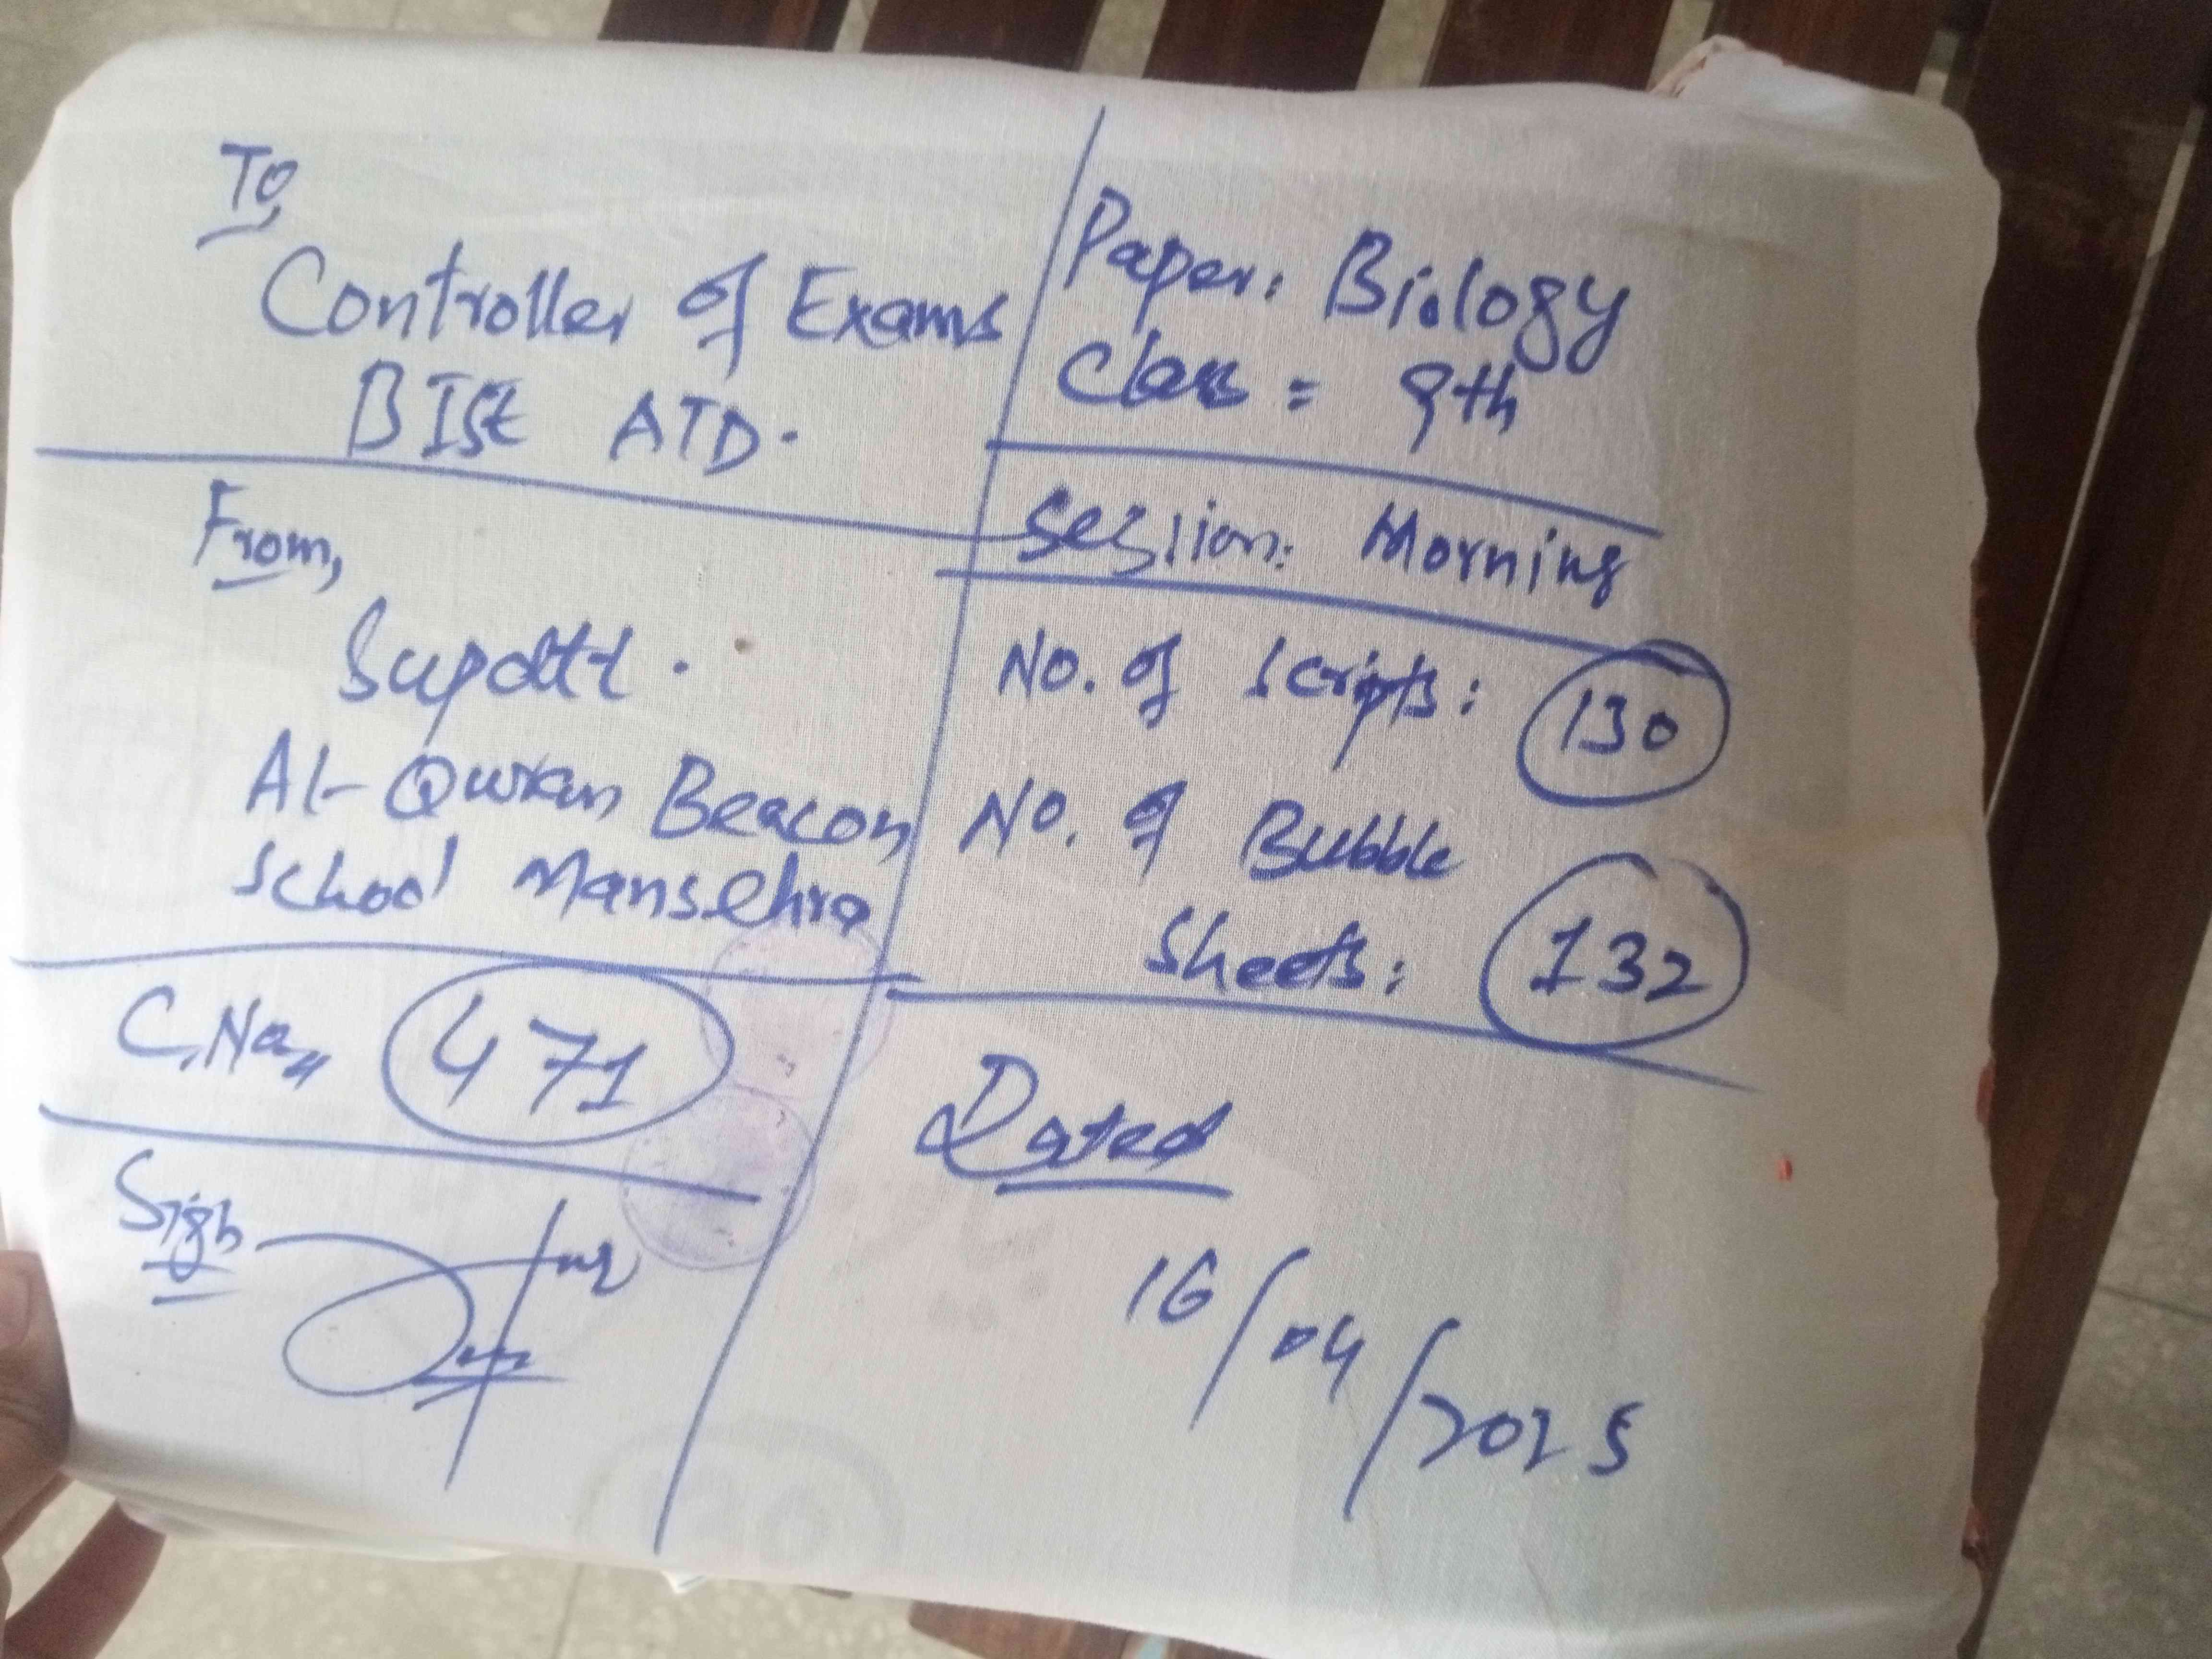 To,
Controller of Exams
BISE ATD.
From,
Supdtt.
Al-Quran Beacon
School Mansehra
C.No,, 471
Sign
Paper: Biology
Class = 9th
Session: Morning
No. of Scripts: 130
No. of Bubble
Sheets: 132
Dated
16/04/2025